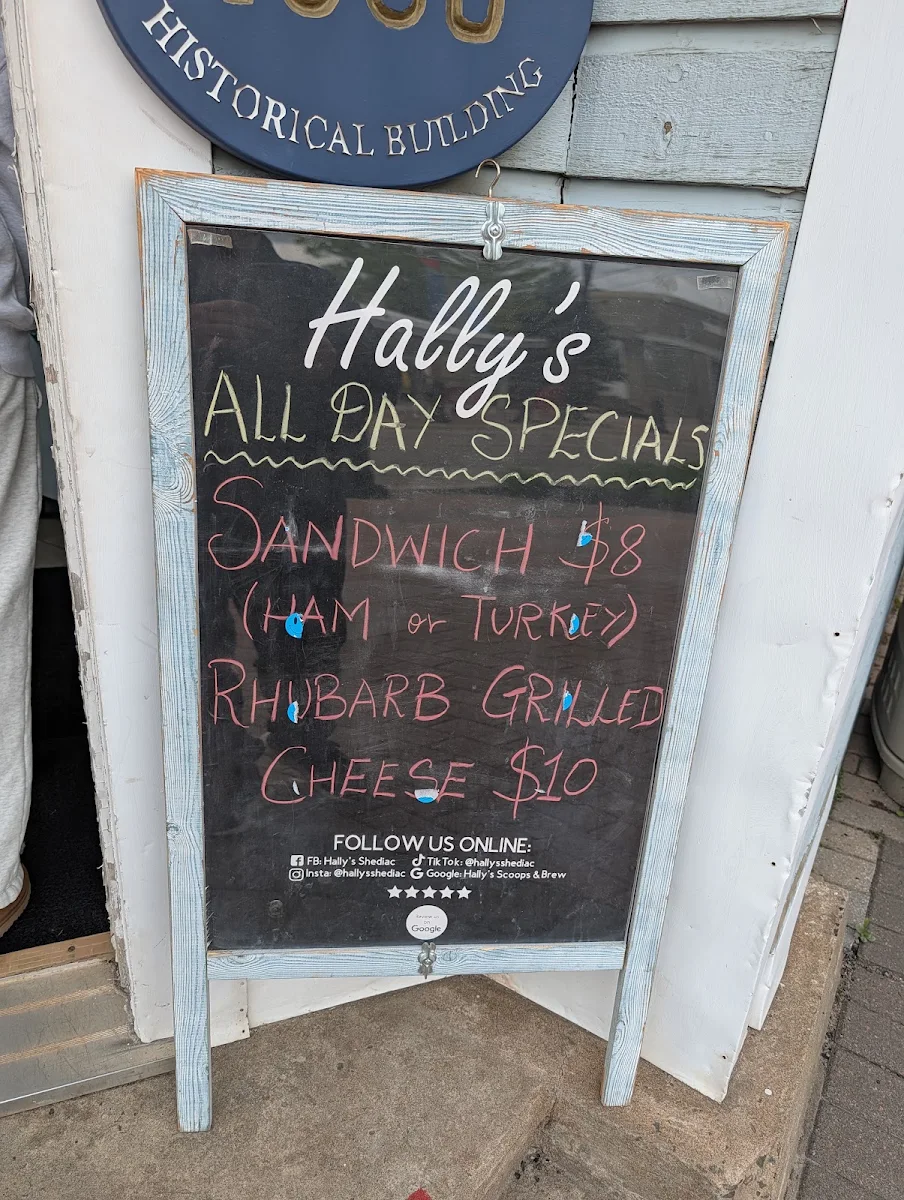 HISTORICAL BUILDING
Hally's
ALL DAY SPECIALS
SANDWICH $8
(HAM or TURKEY)
RHUBARB GRILLED
CHEESE $10
FOLLOW US ONLINE:
FB: Hally's Shediac TikTok: @hallysshediac
Insta: @hallysshediac Google: Hally's Scoops & Brew
Review us
on
Google